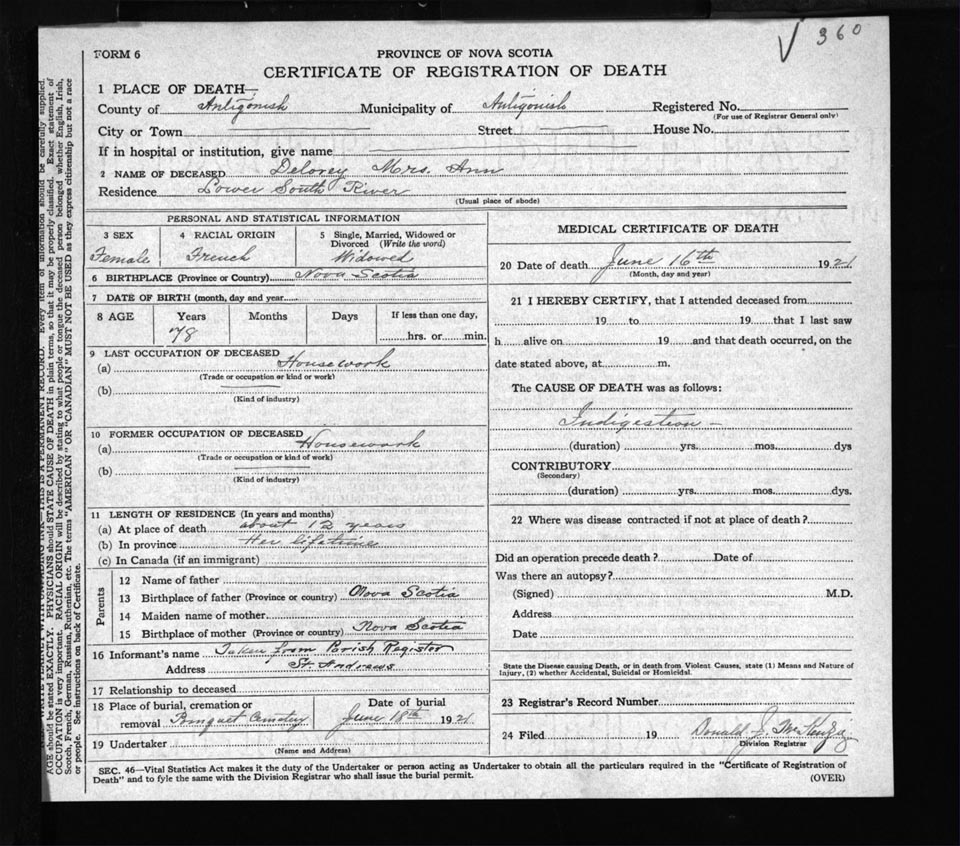 √ 360
FORM 6
PROVINCE OF NOVA SCOTIA
CERTIFICATE OF REGISTRATION OF DEATH
1 PLACE OF DEATH—
County of Antigonish Municipality of Antigonish Registered No.
(For use of Registrar General only)
City or Town Street House No.
If in hospital or institution, give name
2 NAME OF DECEASED Delorey Mrs. Ann
Residence Lower South River
(Usual place of abode)
PERSONAL AND STATISTICAL INFORMATION
3 SEX 4 RACIAL ORIGIN 5 Single, Married, Widowed or
Divorced (Write the word)
Female French Widowed
6 BIRTHPLACE (Province or Country) Nova Scotia
7 DATE OF BIRTH (month, day and year)
8 AGE Years Months Days If less than one day,
78 hrs. or min.
9 LAST OCCUPATION OF DECEASED
(a) Housework
(Trade or occupation or kind or work)
(b)
(Kind of industry)
10 FORMER OCCUPATION OF DECEASED
(a) Housework
(Trade or occupation or kind or work)
(b)
(Kind of industry)
11 LENGTH OF RESIDENCE (In years and months)
(a) At place of death about 12 years
(b) In province Her lifetime
(c) In Canada (if an immigrant)
Parents
12 Name of father
13 Birthplace of father (Province or country) Nova Scotia
14 Maiden name of mother
15 Birthplace of mother (Province or country) Nova Scotia
16 Informant's name Taken from Parish Register
Address St. Andrews
17 Relationship to deceased
18 Place of burial, cremation or Date of burial
removal Pomquet Cemetery June 18th 1921
19 Undertaker
(Name and Address)
MEDICAL CERTIFICATE OF DEATH
20 Date of death June 16th 1921
(Month, day and year)
21 I HEREBY CERTIFY, that I attended deceased from
19 to 19 that I last saw
h alive on 19 and that death occurred, on the
date stated above, at m.
The CAUSE OF DEATH was as follows:
Indigestion –
(duration) yrs. mos. dys
CONTRIBUTORY
(Secondary)
(duration) yrs. mos. dys.
22 Where was disease contracted if not at place of death?
Did an operation precede death? Date of
Was there an autopsy?
(Signed) M.D.
Address
Date
State the Disease causing Death, or in death from Violent Causes, state (1) Means and Nature of
Injury, (2) whether Accidental, Suicidal or Homicidal.
23 Registrar's Record Number
24 Filed 19 Donald J. McKenzie
Division Registrar
SEC. 46—Vital Statistics Act makes it the duty of the Undertaker or person acting as Undertaker to obtain all the particulars required in the "Certificate of Registration of
Death" and to fyle the same with the Division Registrar who shall issue the burial permit. (OVER)
THIS IS A PERMANENT RECORD. Every item of information should be carefully supplied.
AGE should be stated EXACTLY. PHYSICIANS should STATE CAUSE OF DEATH in plain terms, so that it may be properly classified. Exact statement of
OCCUPATION is very important. RACIAL ORIGIN will be described by stating to what people or tongue the deceased person belonged whether English, Irish,
Scotch, French, German, Russian, Ruthenian, etc. The terms "AMERICAN" OR "CANADIAN" MUST NOT BE USED as they express citizenship but not a race
or people. See instructions on back of Certificate.